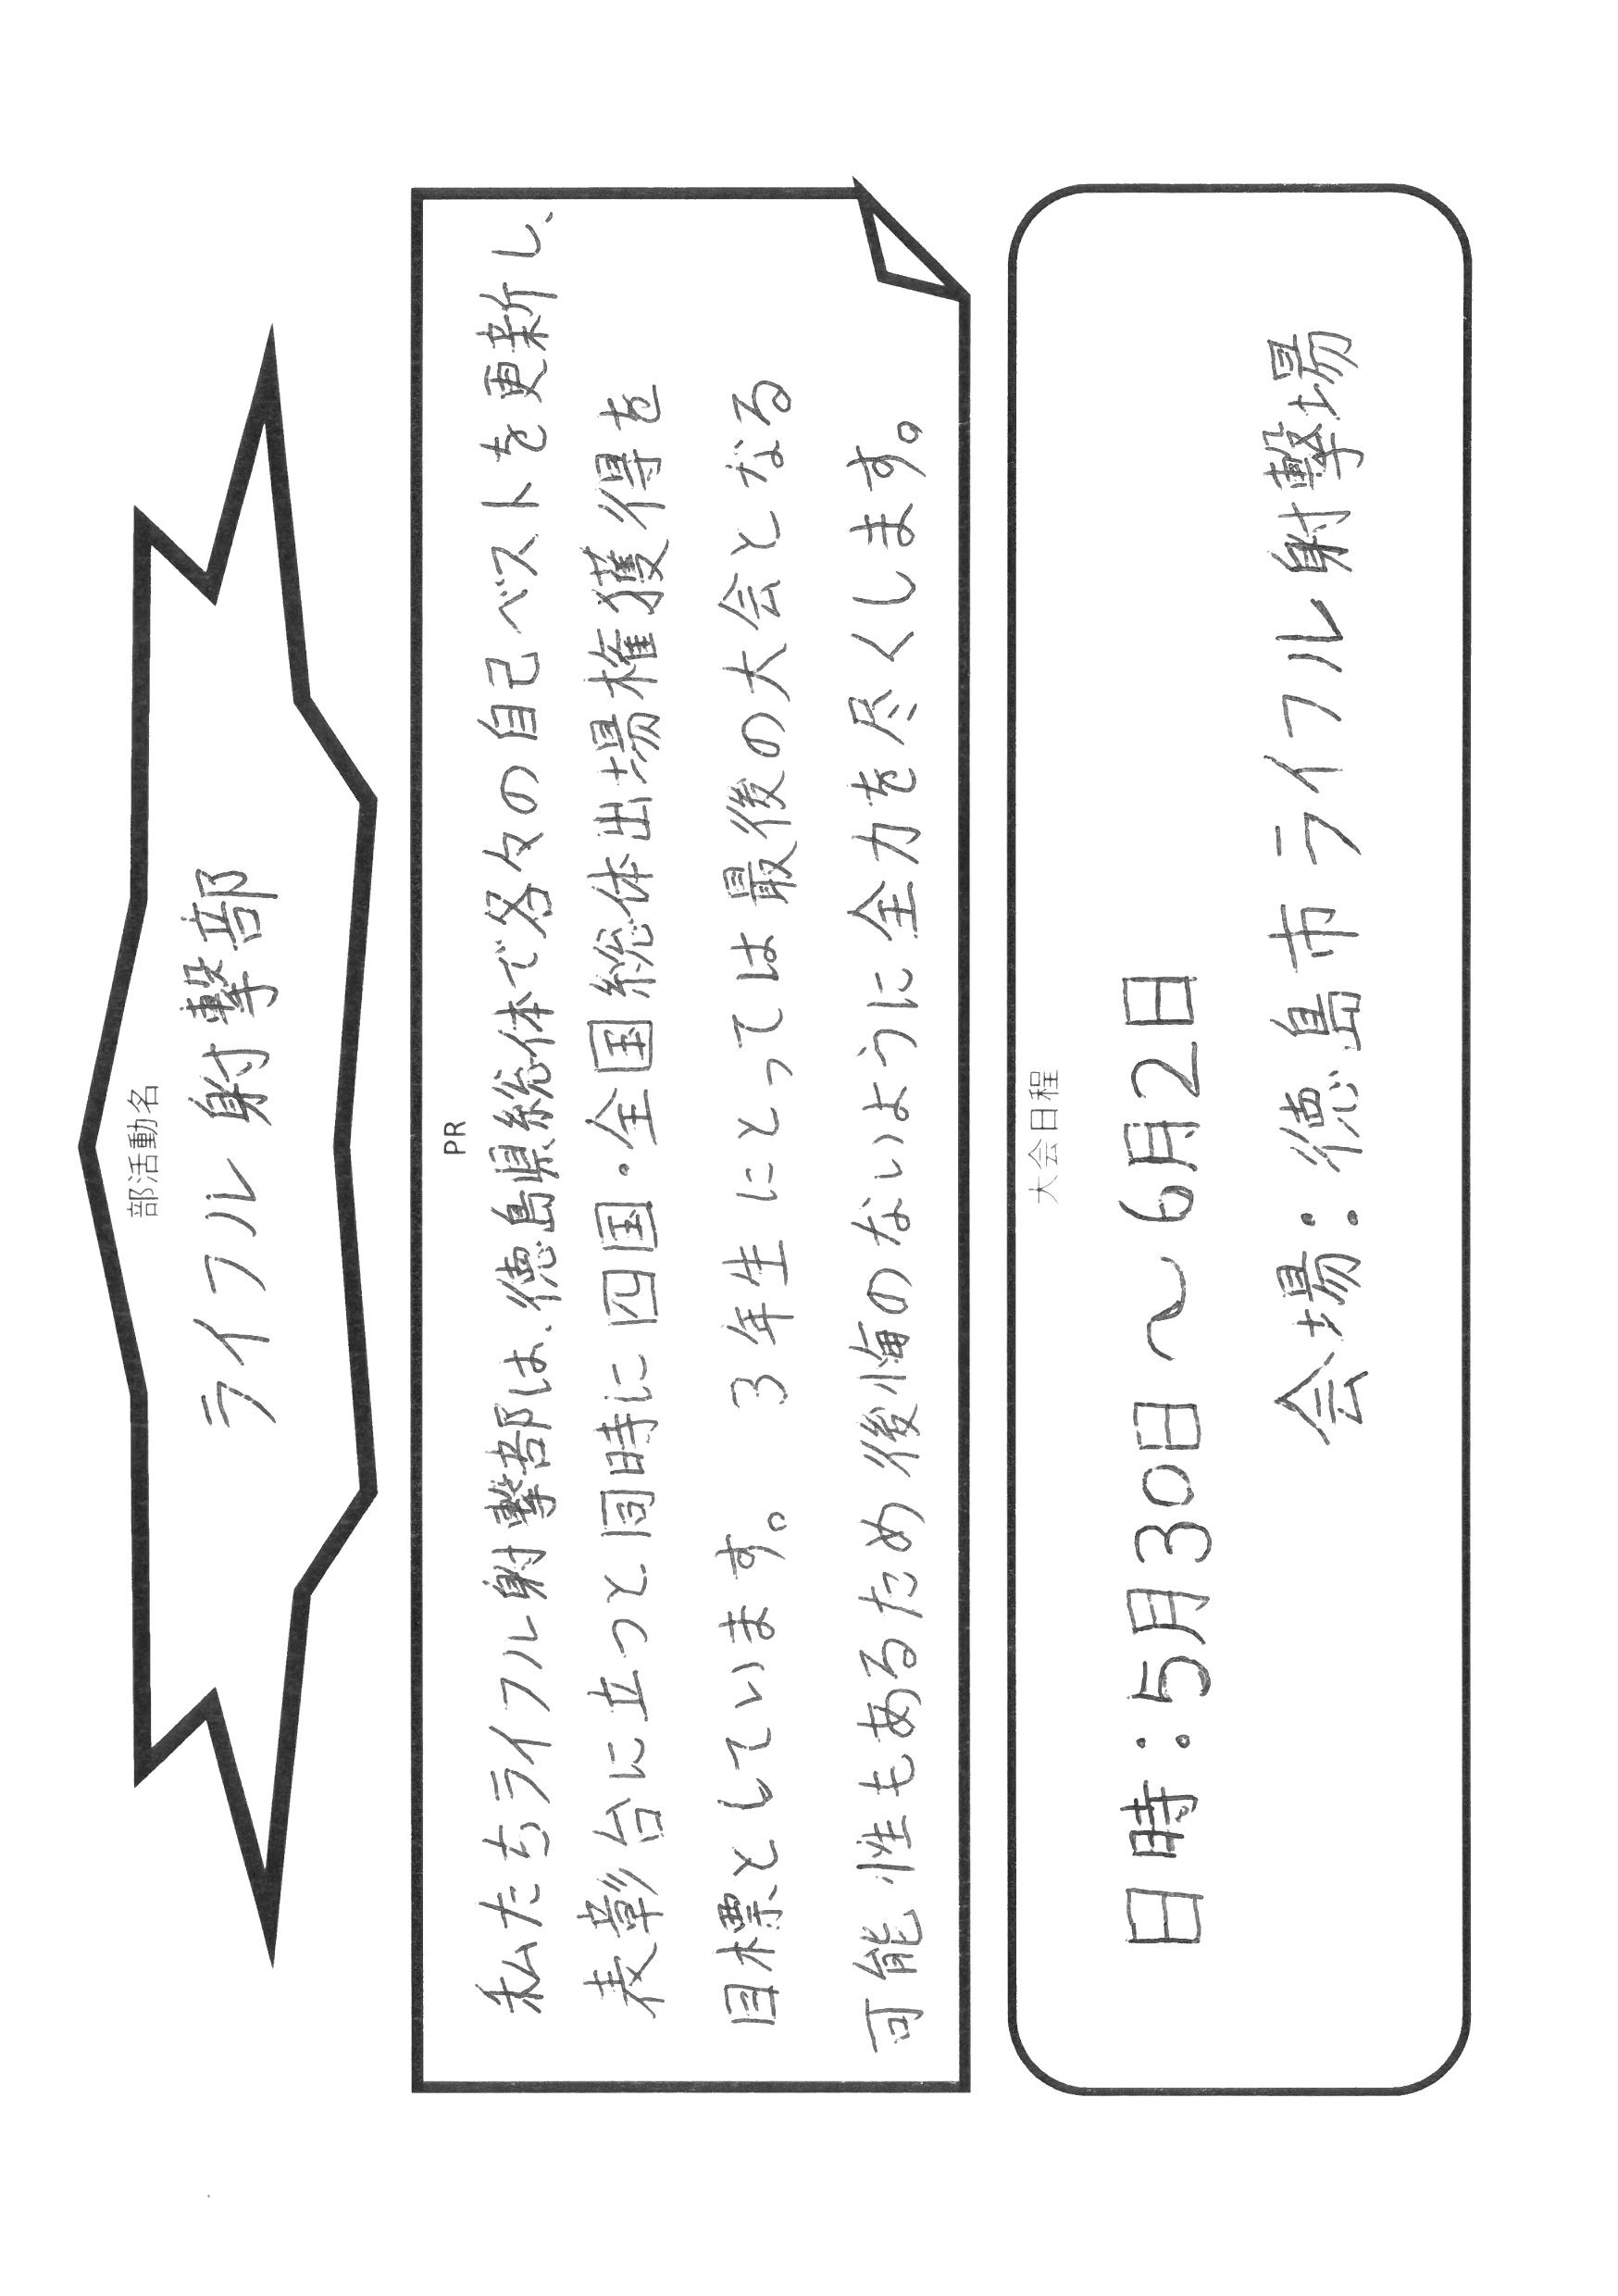 部活動名
ライフル射撃部
PR
私たちライフル射撃部は、徳島県総体で各々の自己ベストを更新し、
表彰台に立つと同時に四国・全国総体出場権獲得を
目標としています。 3年生にとっては最後の大会となる
可能性もあるため後悔のないように全力を尽くします。
大会日程
日時:5月30日~6月2日
会場:徳島市ライフル射撃場